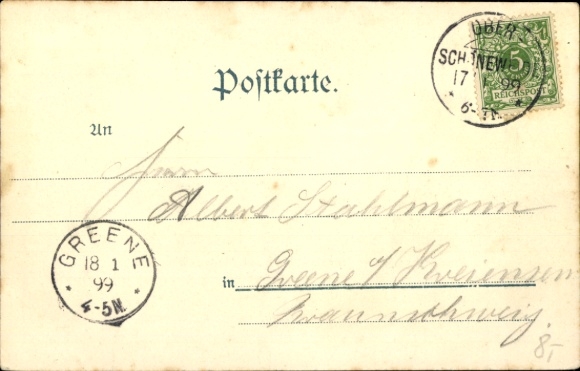 OBER
SCHÖNEW
17 99
* 6-7N. *
5
REICHSPOST
Postkarte.
An
Herrn
Albert Stahlmann
GREENE
18 1
99
* *
4-5N.
in Greene a/ Kreiensen
Braunschweig.
8,-